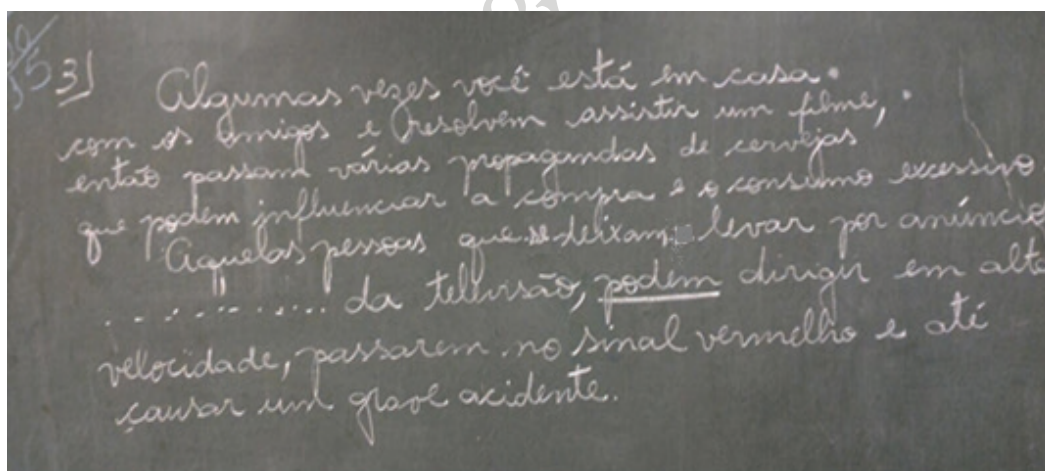 3) Algumas vezes você está em casa.
com os amigos e resolvem assistir um filme,
então passam várias propagandas de cervejas
que podem influenciar a compra e o consumo excessivo
Aquelas pessoas que se deixam levar por anúncio
............ da televisão, podem dirigir em alta
velocidade, passarem no sinal vermelho e até
causar um grave acidente.